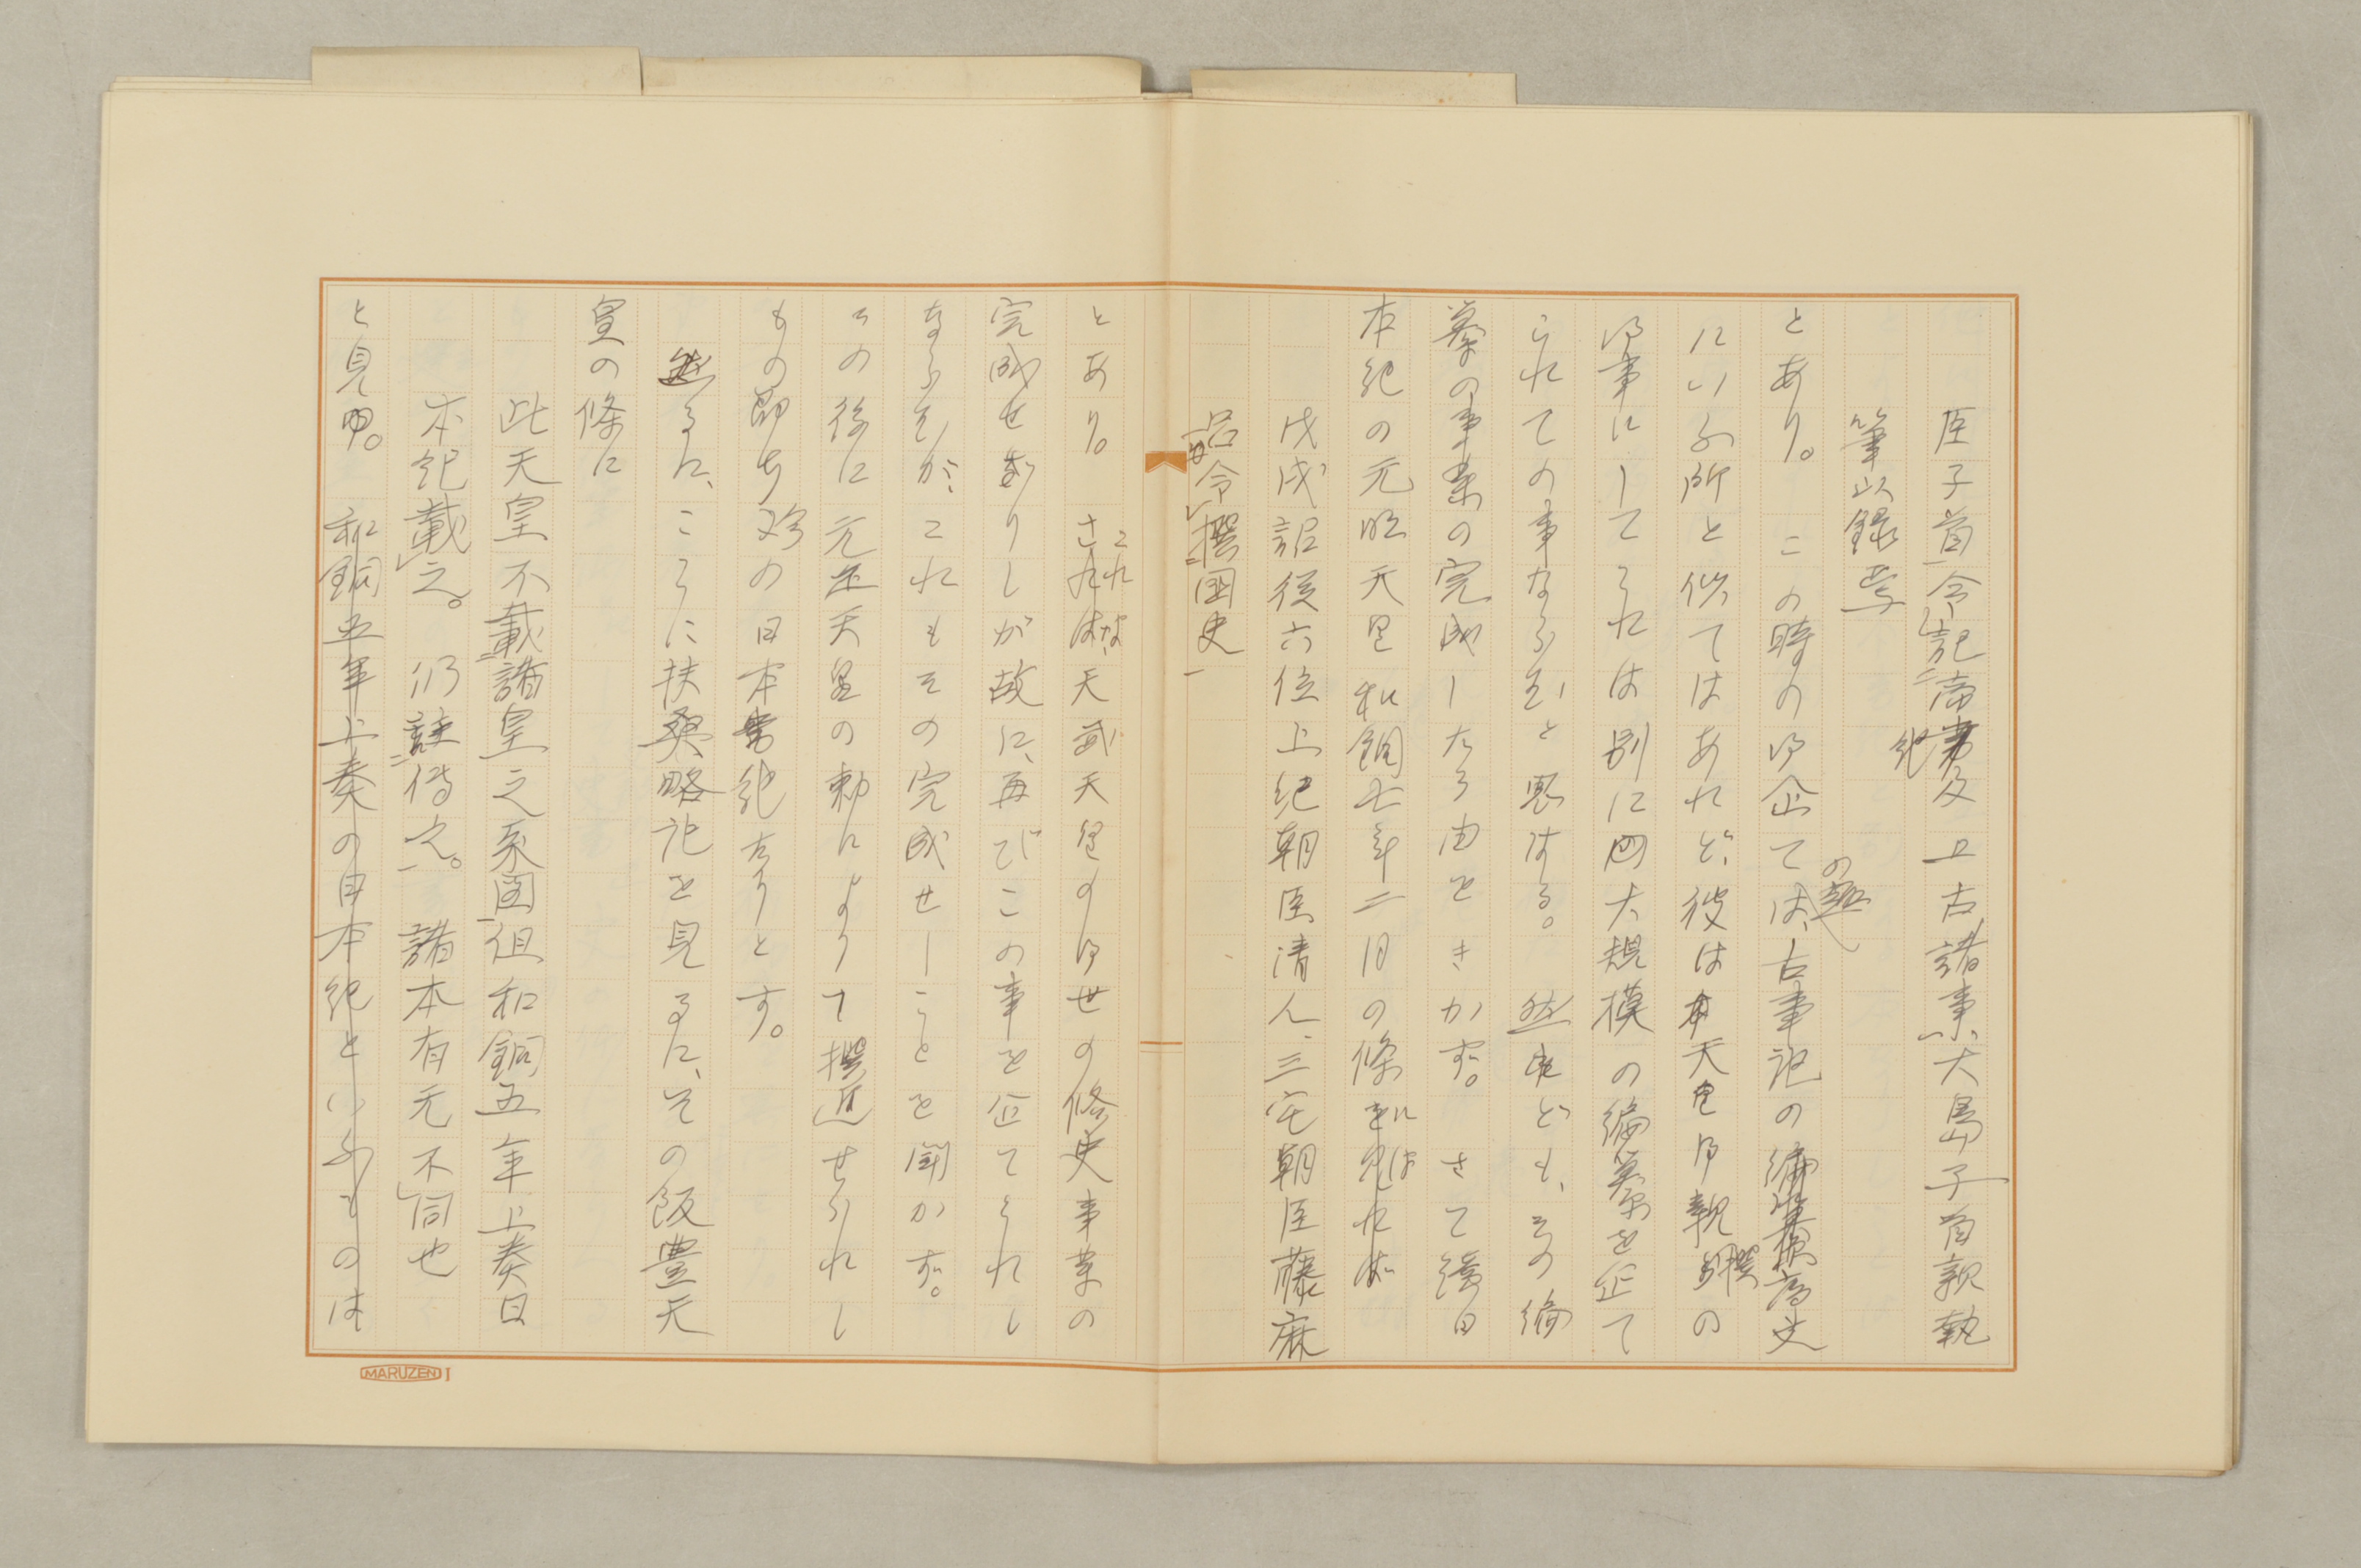 臣子首、令記帝紀及上古諸事、大島子首親執
筆以録焉
とあり。この時の御企ては、古事記の編纂の趣
にいふ所と似てはあれど、彼は天皇御親撰の
御事にしてこれは別に大規模の編纂を企て
られての事ならむと思はる。然れども、その編
纂の事業の完成したる由をきかず。さて続日
本紀の元明天皇和銅七年二月の條には
戊戌詔従六位上紀朝臣清人、三宅朝臣藤麻
呂令撰国史
とあり。これは、天武天皇の御世の修史事業の
完成せざりしが故に、再びこの事を企てられし
ならむが、これもその完成せしことを聞かず。
その後に元正天皇の勅によりて撰進せられし
もの即ち現の日本書紀なりとす。
然るに、ここに扶桑略記を見るに、その飯豊天
皇の條に
此天皇不載諸皇之系図但和銅五年上奏日
本紀載之。仍註傳之。諸本有无不同也
と見ゆ。和銅五年上奏の日本紀といふものは
MARUZEN I